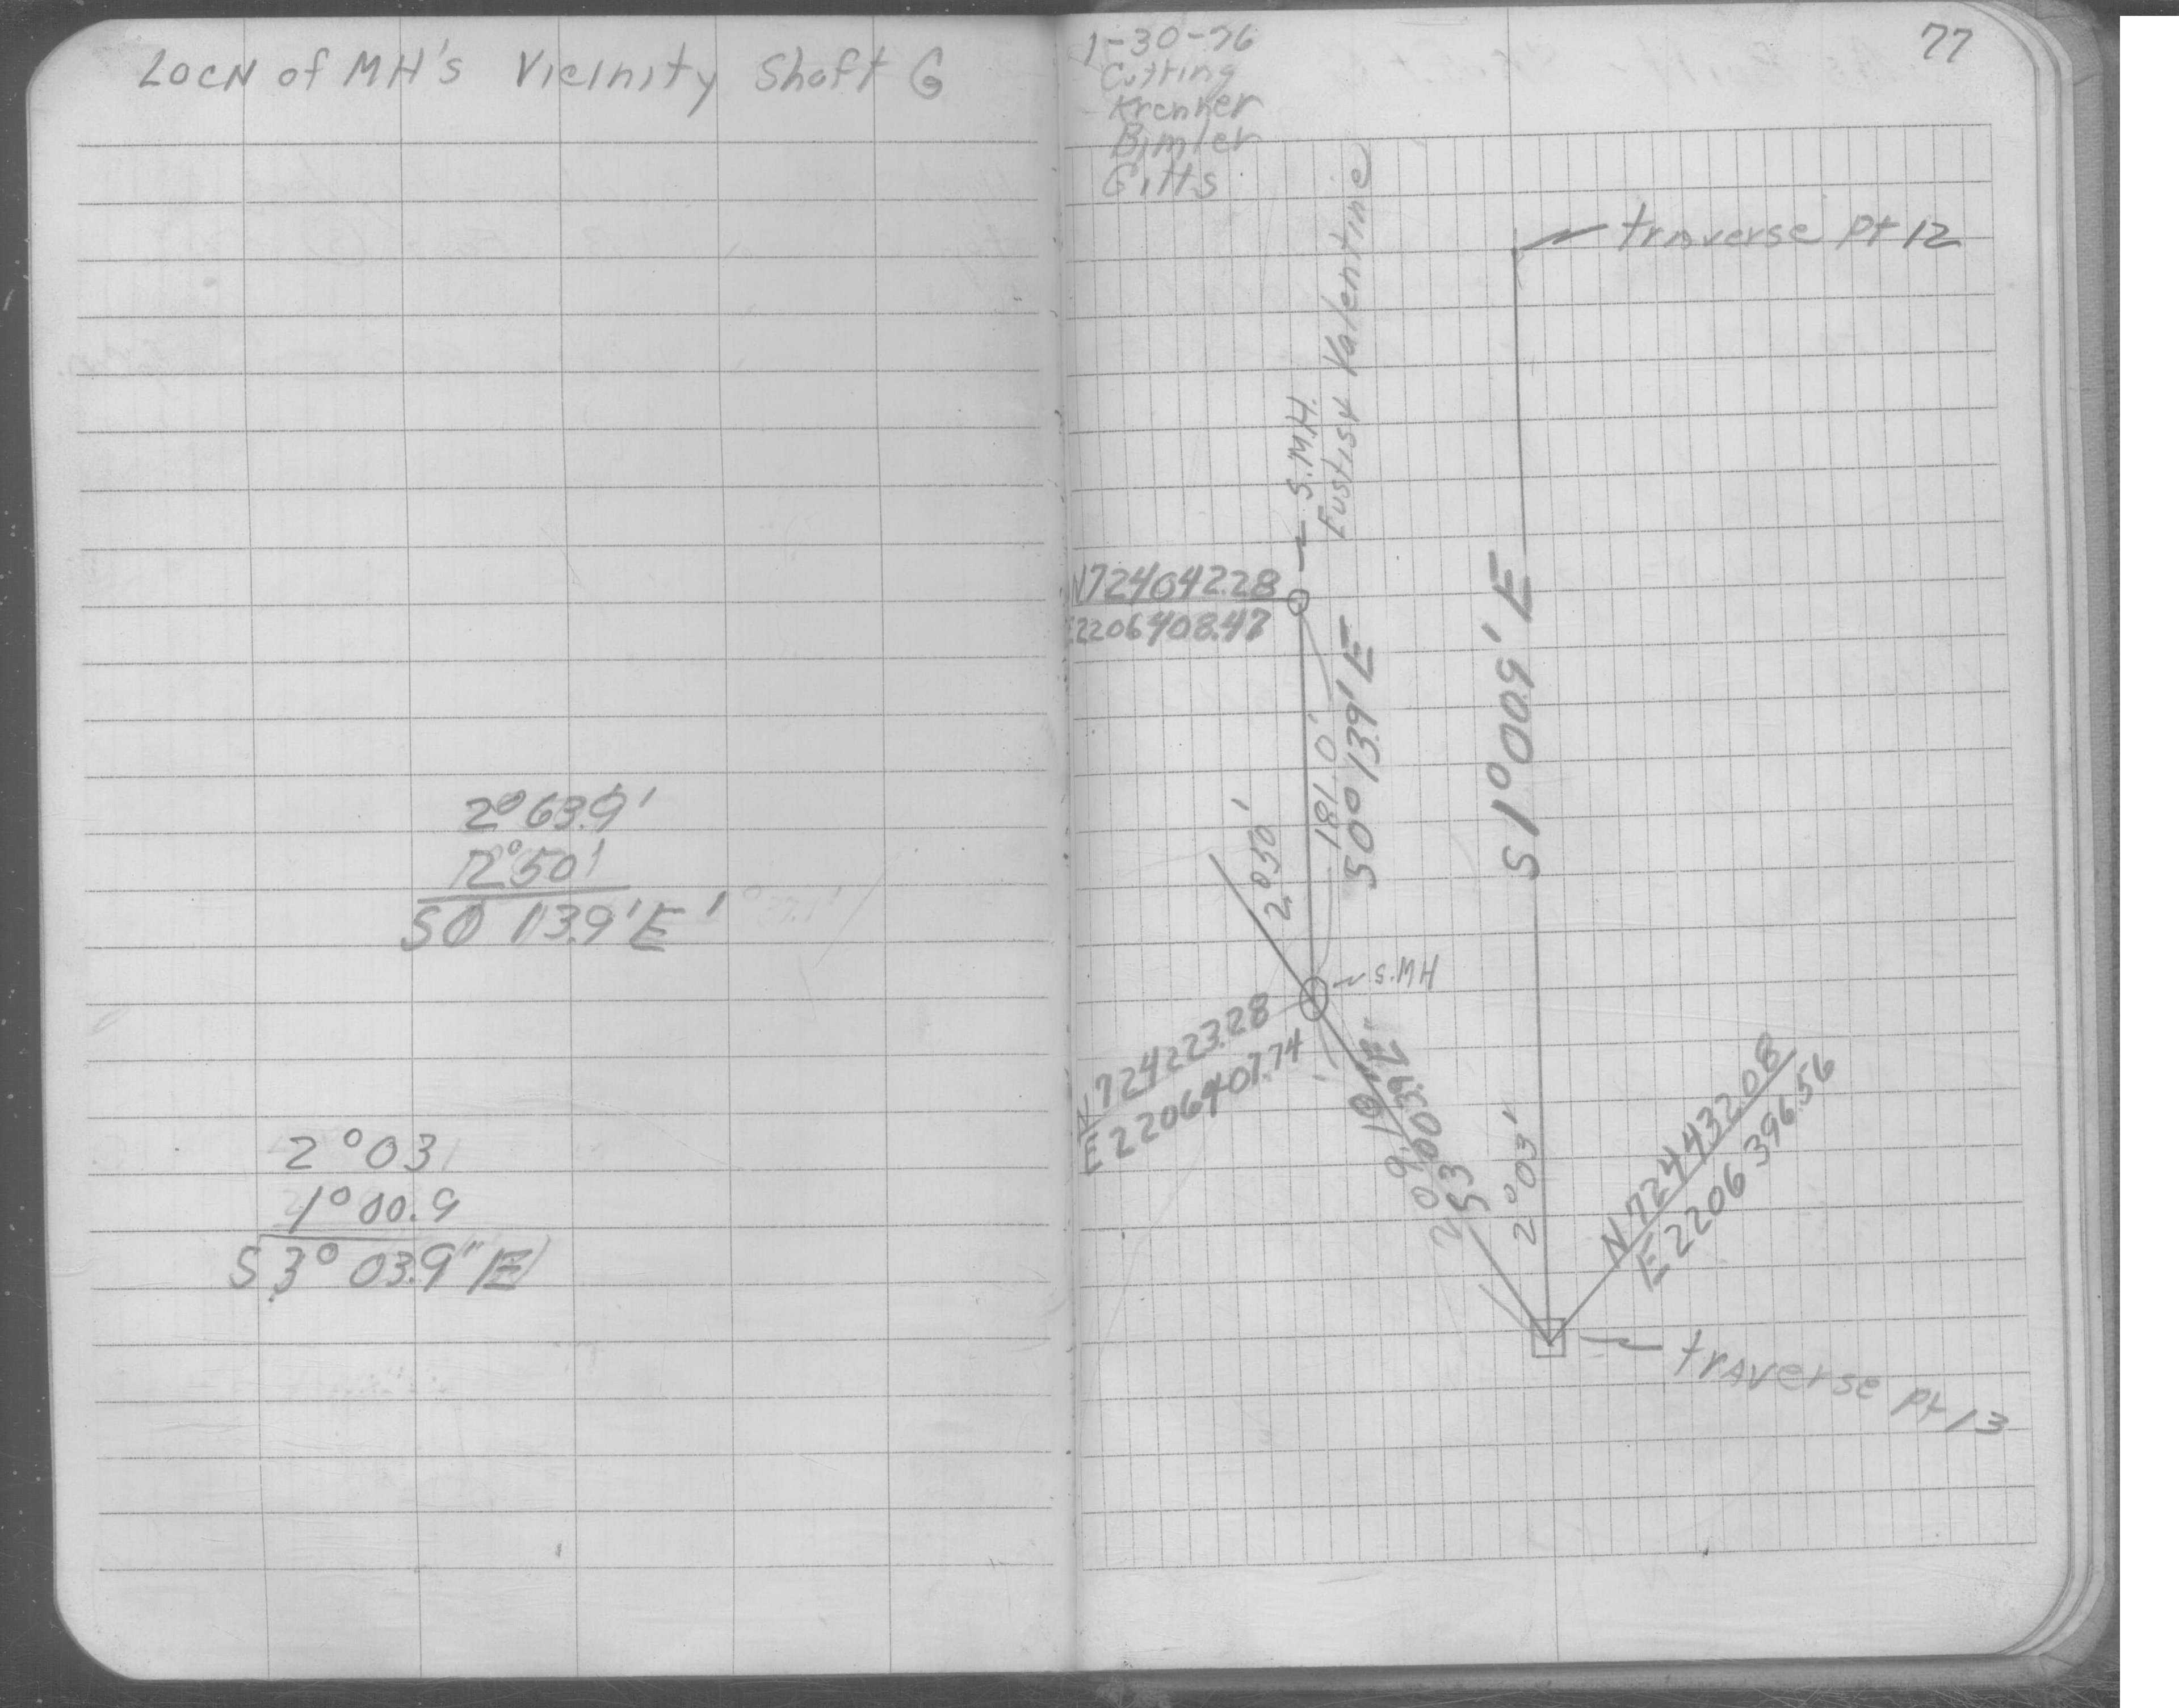 Locn of MH's Vicinity Shaft G
2°63.9'
2°50'
S0 13.9'E'
2°03
1°00.9
S 3° 03.9"E
1-30-76
Cutting
Krenner
Bimler
Gitts
77
traverse Pt 12
S.MH.
Eustis & Valentine
N724042.28
E2206408.47
181.0'
S0° 13.9' E
S1°00.9' E
2°50'
S.MH
N724223.28
E2206407.74
S3°00
2°03'
N72443208
E2206396.56
traverse Pt 13